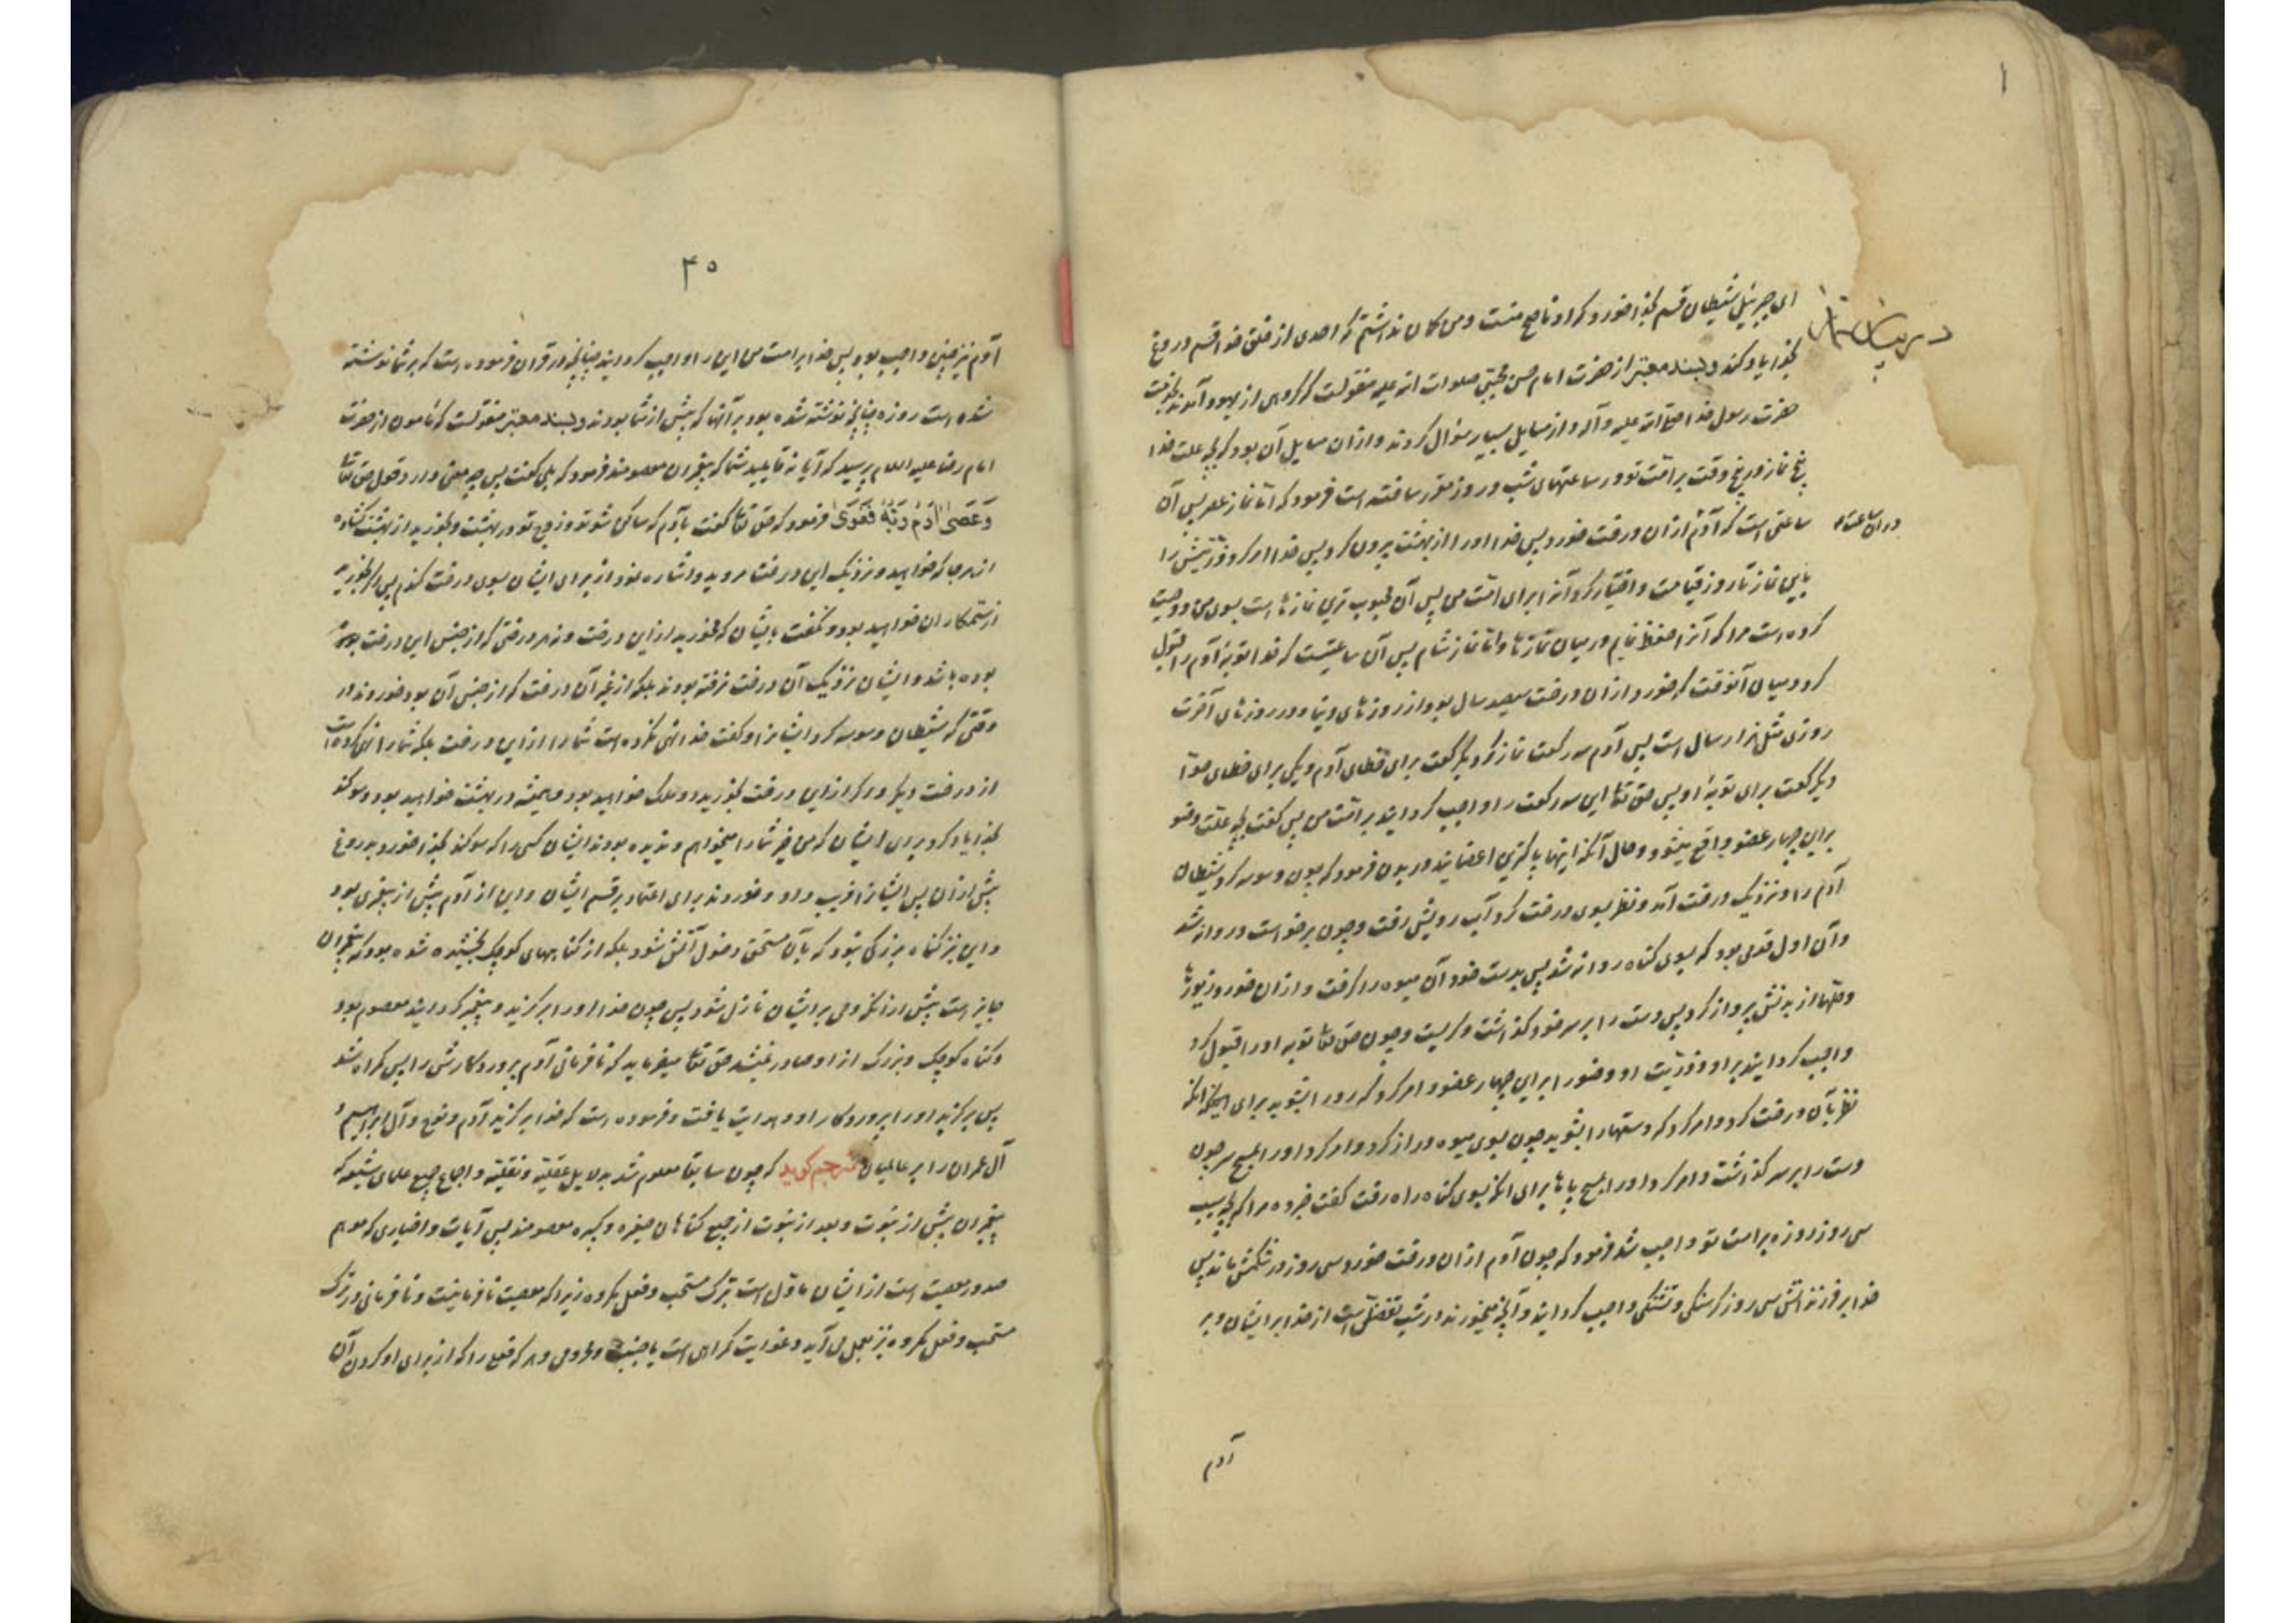 ۱
ای جبرئیل شیطان قسم بخدا خورد که او ناصح منست و من کمان نداشتم که احدی از خلق خدا قسم دروغ
بخدا یاد کند و بسند معتبر از حضرت امام حسن مجتبی صلوات الله علیه منقولست که کروهی از یهود آمدند بخدمت
حضرت رسول خدا صلی الله علیه و آله و از مسایل بسیار سؤال کردند و از ان مسایل آن بود که بچه علت خدا
پنج نماز در پنج وقت بر امّت تو در ساعتهای شب و روز مقرر ساخته است فرمود که امّا نماز عصر پس آن
در ان ساعت
ساعتی است که آدم از ان درخت خورد پس خدا او را از بهشت بیرون کرد پس خدا امر کرد ذرّیتش را
باین نماز تا روز قیامت و اختیار کرد آنرا برای امّت من پس آن محبوب ترین نمازها است بسوی من و وصیت
کرده است مرا که آنرا حفظ نمایم در میان نمازها و امّا نماز شام پس آن ساعتیست که خدا توبهٔ آدم را قبول
کرد و میان آنوقت که خورد از ان درخت سیصد سال بود از روزهای دنیا و در روزهای آخرت
روزی مثل هزار سال است پس آدم سه رکعت نماز کرد یکرکعت برای خطای آدم و یکی برای خطای حوّا
و یکرکعت برای توبهٔ او پس حق تعا این سه رکعت را واجب کردانید بر امّت من پس کفت بچه علت وضو
براین چهار عضو واقع میشود و حال آنکه اینها پاکترین اعضایند در بدن فرمود که چون وسوسه کرد شیطان
آدم را و نزدیک درخت آمد و نظر بسوی درخت کرد آب رویش رفت و چون برخواست و روانه شد
و آن اول قدمی بود که بسوی کناه روانه شد پس بدست خود آن میوه را کرفت و از ان خورد زیورها
و حلّها از بدنش پرواز کرد پس دست را بر سر خود کذاشت و کریست و چون حق تعا توبه او را قبول کرد
واجب کردانید بر او و ذرّیت او وضو را براین چهار عضو و امر کرد که رو را بشوید برای اینکه
نظر بآن درخت کرد و امر کرد که دستها را بشوید چون بسوی میوه دراز کرد و امر کرد او را بمسح سر چون
دست را بر سر کذاشت و امر کرد او را بمسح پاها برای آنکه بسوی کناه راه رفت کفت خبر ده مرا که بچه سبب
سی روز روزه بر امت تو واجب شد فرمود که چون آدم از ان درخت خورد سی روز در شکمش ماند پس
خدا بر فرزندانش سی روز کرسنکی و تشنکی واجب کردانید و آنچه میخورند در شب تفضّلی است از خدا بر ایشان و بر
آدم
۴۵
آدم نیز چنین واجب بود پس خدا بر امت من این را واجب کردانید چنانچه در قران فرموده است که بر شما نوشته
شده است روزه چنانچه نوشته شده بود بر آنها که پیش از شما بودند و بسند معتبر منقولست که مامون از حضرت
امام رضا علیه السلام پرسید که آیا نه قایلید شما که پیغمبران معصومند فرمود که بلی کفت پس چه معنی دارد قول حق تعا
وَعَصىٰ اٰدَمُ رَبَّهُ فَغَوَىٰ فرمود که حق تعا کفت بآدم که ساکن شو تو و زوج تو در بهشت و بخورید از بهشت کشاده
از هر جا که خواهید و نزدیک این درخت مروید و اشاره نمود از برای ایشان بسوی درخت کندم پس اکر بخورید
از ستمکاران خواهید بود و نکفت بایشان که مخورید از این درخت و نه هر درختی که از جنس این درخت
بوده باشد و ایشان نزدیک آن درخت نرفته بودند بلکه از غیر آن درخت که از جنس آن بود خوردند در
وقتی که شیطان وسوسه کرد ایشانرا و کفت خدا نهی نکرده است شما را از این درخت بلکه شما را نهی کرده است
از درخت دیکر و اکر از این درخت بخورید دو ملک خواهید بود و همیشه در بهشت خواهید بود و سوکند
بخدا یاد کرد برای ایشان که من خیر شما را میخواهم و ندیده بودند ایشان کسی را که سوکند بخدا خورد بدروغ
پیش از ان پس ایشانرا فریب داد و خوردند برای اعتماد بر قسم ایشان و این از آدم پیش از پیغمبری بود
و این نیز کناه بزرکی نبود که بآن مستحق دخول آتش شود بلکه از کناههای کوچک بخشیده شده بود که پیغمبران
جایز است پیش از انکه وحی بر ایشان نازل شود پس چون خدا او را برکزید و پیغمبر کردانید معصوم بود
و کناه کوچک و بزرک از او صادر نمیشد حق تعا میفرماید که نافرمانی آدم پروردکارش را پس کمراه شد
پس برکزید او را پروردکار او و هدایت یافت و فرموده است که خدا برکزید آدم و نوح و آل ابراهیم و
آل عمران را بر عالمیان مترجم کوید که چون سابقا معلوم شد بدلایل عقلیّه و نقلیّه و اجماع جمیع علمای شیعه که
پیغمبران پیش از نبوت و بعد از نبوت از جمیع کناهان صغیره و کبیره معصومند پس آیات و اخباری که موهم
صدور معصیت است از ایشان ماوّل است بترک مستحب و فعل مکروه زیرا که معصیت نافرمانیست و نافرمانی در ترک
مستحب و فعل مکروه نیز بعمل می آید و غوایت کمراهی است یا خیبت و محرومی و هر که فعلی را که از برای او کردن آن